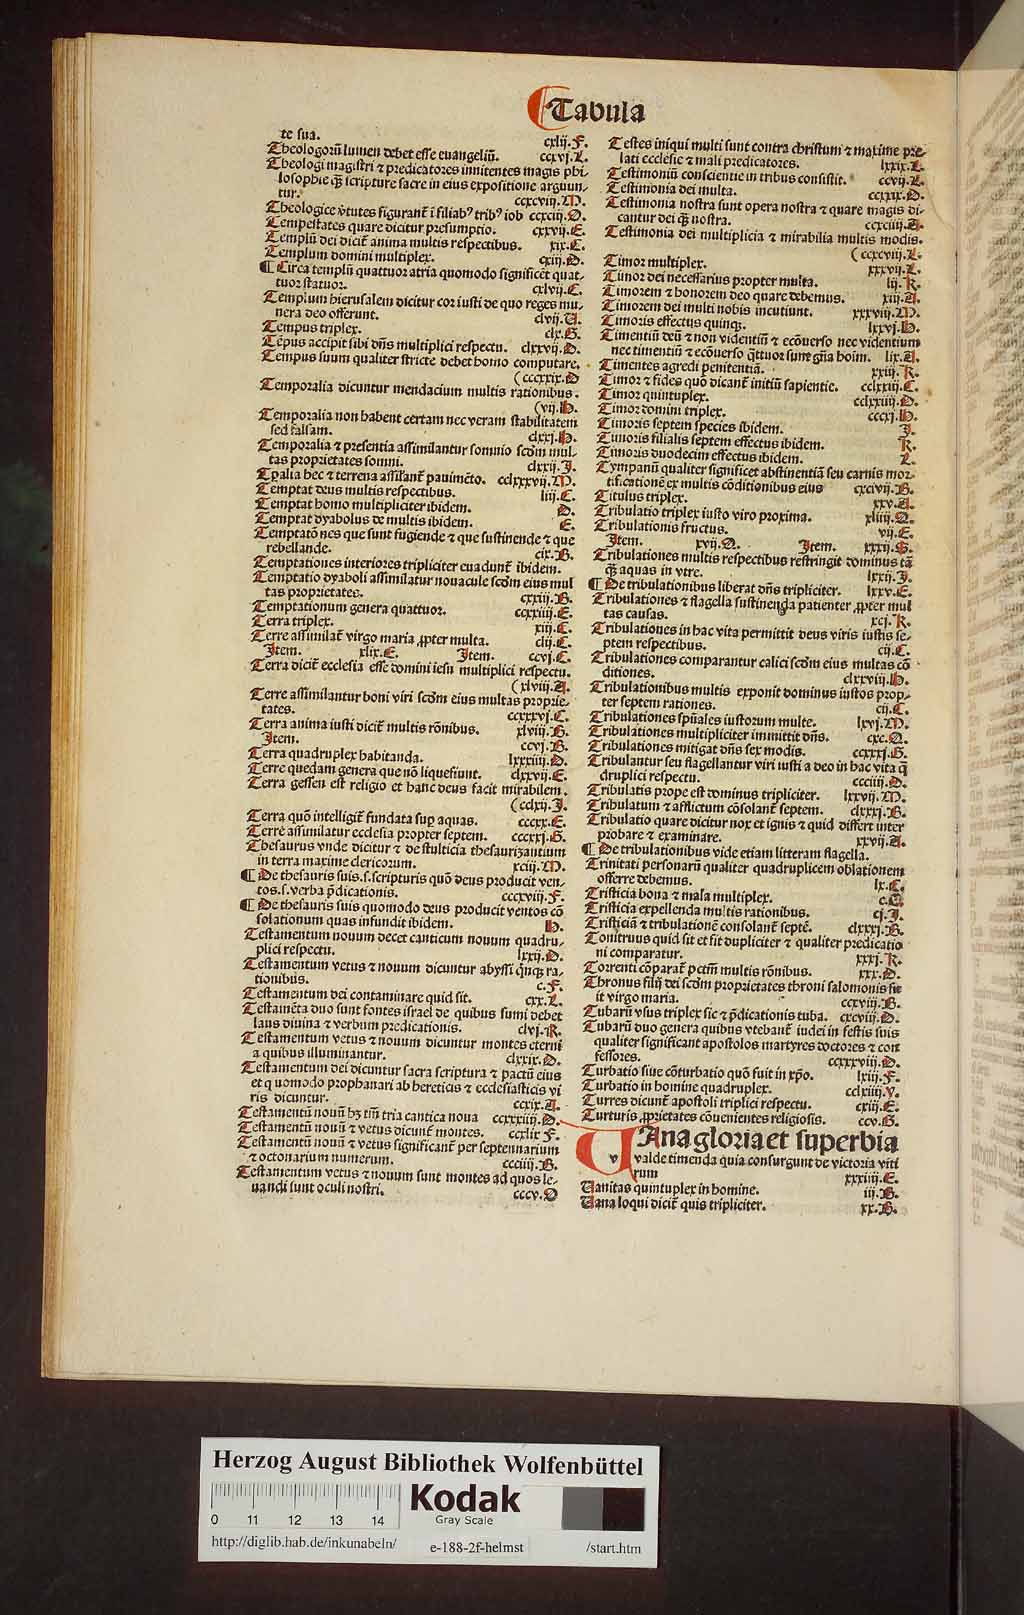 Tabula
te sua. cxlij.F.
Theologorū lumen debet esse euangeliū. ccxvj.L.
Theologi magistri ⁊ predicatores innitentes magis phi-
losophie q̄ȝ scripture sacre in eius expositione arguun-
tur. ccxcviij.M.
Theologice v̄tutes figurant̄ ī filiabꝰ tribꝰ iob ccxciij.O.
Tempestates quare dicitur presumptio. cxxvij.E.
Templū dei dicit̄ anima multis respectibus. xix.C.
Templum domini multiplex. cxiij.D.
¶ Circa templū quattuor atria quomodo significēt quat-
tuor statuor. cxlvij.C.
Templum hierusalem dicitur cor iusti de quo reges mu-
nera deo offerunt. clvij.U.
Tempus triplex. clx.G.
Tēpus accipit sibi dn̄s multiplici respectu. clxxvij.D.
Tempus suum qualiter stricte debet homo computare.
(cccxxix.D
Temporalia dicuntur mendacium multis rationibus.
(vij.H.
Temporalia non habent certam nec veram stabilitatem
sed falsam. clxxj.H.
Temporalia ⁊ presentia assimilantur somnio scd̄m mul-
tas proprietates somni. clxxij.J.
Tp̄alia hec ⁊ terrena assilant̄ pauimēto. cclxxxvij.M.
Temptat deus multis respectibus. liij.C.
Temptat homo multipliciter ibidem. D.
Temptat dyabolus de multis ibidem. E.
Temptatōnes que sunt fugiende ⁊ que sustinende ⁊ que
rebellande. cix.B.
Temptationes interiores tripliciter euadunt̄ ibidem.
Temptatio dyaboli assimilatur nouacule scd̄m eius mul
tas proprietates. cxxij.B.
Temptationum genera quattuor. ccxxiiij.E.
Terra triplex. xiij.C.
Terre assimilat̄ virgo maria ꝓpter multa. clij.C.
Item. xlix.E. Item. ccvj.C.
Terra dicit̄ ecclesia esse domini iesu multiplici respectu.
(xlviij.A.
Terre assimilantur boni viri scd̄m eius multas proprie-
tates. ccxxxvj.C.
Terra anima iusti dicit̄ multis rōnibus. xlviij.B.
Item. ccvj.B.
Terra quadruplex habitanda. lxxxiiij.D.
Terre quedam genera que nō liquefiunt. clxxvij.E.
Terra gessen est religio et hanc deus facit mirabilem.
(cclxij.J.
Terra quō intelligit̄ fundata sup aquas. ccccx.E.
Terre assimilatur ecclesia propter septem. cccxxj.G.
Thesaurus vnde dicitur ⁊ de stulticia thesaurizantium
in terra maxime clericorum. xciij.M.
¶ De thesauris suis.s.scripturis quō deus producit ven-
tos.s.verba p̄dicationis. cccxviij.F.
¶ De thesauris suis quomodo deus producit ventos cō
solationum quas infundit ibidem. H.
Testamentum nouum decet canticum nouum quadru-
plici respectu. lxxij.D.
Testamentum vetus ⁊ nouum dicuntur abyssi q̄nqȝ ra-
tionibus. c.F.
Testamentum dei contaminare quid sit. cxx.L.
Testamēta duo sunt fontes israel de quibus sumi debet
laus diuina ⁊ verbum predicationis. clvj.R.
Testamentum vetus ⁊ nouum dicuntur montes eterni
a quibus illuminantur. clxxix.D.
Testamentum dei dicuntur sacra scriptura ⁊ pactū eius
et quomodo prophanari ab hereticis ⁊ ecclesiasticis vi
ris dicuntur. ccxix.A.
Testamentū nouū hȝ tm̄ tria cantica noua ccxxxiiij.D.
Testamentū nouū ⁊ vetus dicunt̄ montes. ccxlix F.
Testamentū nouū ⁊ vetus significant̄ per septennarium
⁊ octonarium numerum. ccciiij.B.
Testamentum vetus ⁊ nouum sunt montes ad quos le-
uandi sunt oculi nostri. cccv.O
Testes iniqui multi sunt contra christum ⁊ maxime pre-
lati ecclesie ⁊ mali predicatores. lxxix.L.
Testimoniū conscientie in tribus consistit. ccvij.L.
Testimonia dei multa. ccxxix.D.
Testimonia nostra sunt opera nostra ⁊ quare magis di-
cantur dei q̄ȝ nostra. ccxciiij.A.
Testimonia dei multiplicia ⁊ mirabilia multis modis.
(ccxcviij.L.
Timor multiplex. xxxvij.L.
Timor dei necessarius propter multa. lij.K.
Timorem ⁊ honorem deo quare debemus. xij.A.
Timorem dei multi nobis incutiunt. xxxviij.M.
Timoris effectus quinqȝ. lxxvj.H.
Timentiū deū ⁊ non videntiū ⁊ ecōuerso nec videntium
nec timentiū ⁊ ecōuerso q̄ttuor sunt gn̄a hoim. lix.A.
Timentes agredi penitentiā. xxiij.K.
Timor ⁊ fides quō dicant̄ initiū sapientie. cclxxiij.C.
Timor quintuplex. cclxxiiij.D.
Timor domini triplex. cccxj.H.
Timoris septem species ibidem. J.
Timoris filialis septem effectus ibidem. K.
Timoris duodecim effectus ibidem. L.
Tympanū qualiter significet abstinentiā seu carnis mor-
tificationē ex multis cōditionibus eius cxcvij.B.
Titulus triplex. xxv.A.
Tribulatio triplex iusto viro proxima. xliiij.Q.
Tribulationis fructus. vij.E.
Item. xvij.O. Item. xxxij.S.
Tribulationes multis respectibus restringit dominus tā
q̄ȝ aquas in vtre. lxxij.J.
¶ De tribulationibus liberat dn̄s tripliciter. lxxv.E.
Tribulationes ⁊ flagella sustinenda patienter ꝓpter mul
tas causas. xcj.K.
Tribulationes in hac vita permittit deus viris iustis se-
ptem respectibus. cij.C.
Tribulationes comparantur calici scd̄m eius multas cō
ditiones. clxxvij.H.
Tribulationibus multis exponit dominus iustos prop-
ter septem rationes. cij.C.
Tribulationes spūales iustorum multe. lxvj.M.
Tribulationes multipliciter immittit dn̄s. cxc.Q.
Tribulationes mitigat dn̄s sex modis. ccxxxj.G.
Tribulantur seu flagellantur viri iusti a deo in hac vita q̄
druplici respectu. ccciiij.D.
Tribulatis prope est dominus tripliciter. lxxvij.M.
Tribulatum ⁊ afflictum cōsolant̄ septem. clxxxj.B.
Tribulatio quare dicitur nox et ignis ⁊ quid differt inter
probare ⁊ examinare. xxvij.A.
¶ De tribulationibus vide etiam litteram flagella.
Trinitati personarū qualiter quadruplicem oblationem
offerre debemus. lx.C.
Tristicia bona ⁊ mala multiplex. c.C.
Tristicia expellenda multis rationibus. cj.J.
Tristiciā ⁊ tribulationē consolant̄ septē. clxxxj.B.
Tonitruus quid sit et fit dupliciter ⁊ qualiter predicatio
ni comparatur. xxxj.K.
Torrenti cōparat̄ pctm̄ multis rōnibus. xxx.D.
Thronus filij dei scd̄m proprietates throni salomonis su
it virgo maria. ccxviij.B.
Tubarū vsus triplex sic ⁊ p̄dicationis tuba. cxcviij.D.
Tubarū duo genera quibus vtebant̄ iudei in festis suis
qualiter significant apostolos martyres doctores ⁊ con
fessores. ccxxxviij.D.
Turbatio siue cōturbatio quō fuit in xp̄o. lxiij.F.
Turbatio in homine quadruplex. cclxiij.V.
Turres dicunt̄ apostoli triplici respectu. cxij.E.
Turturis ꝓprietates cōuenientes religiosis. ccv.G.
VAna gloria et superbia
valde timenda quia consurgunt de victoria viti
rum xxxiiij.E.
Vanitas quintuplex in homine. iij.B.
Vana loqui dicit̄ quis tripliciter. xx.B.
Herzog August Bibliothek Wolfenbüttel
0 11 12 13 14
Kodak
Gray Scale
http://diglib.hab.de/inkunabeln/ e-188-2f-helmst /start.htm